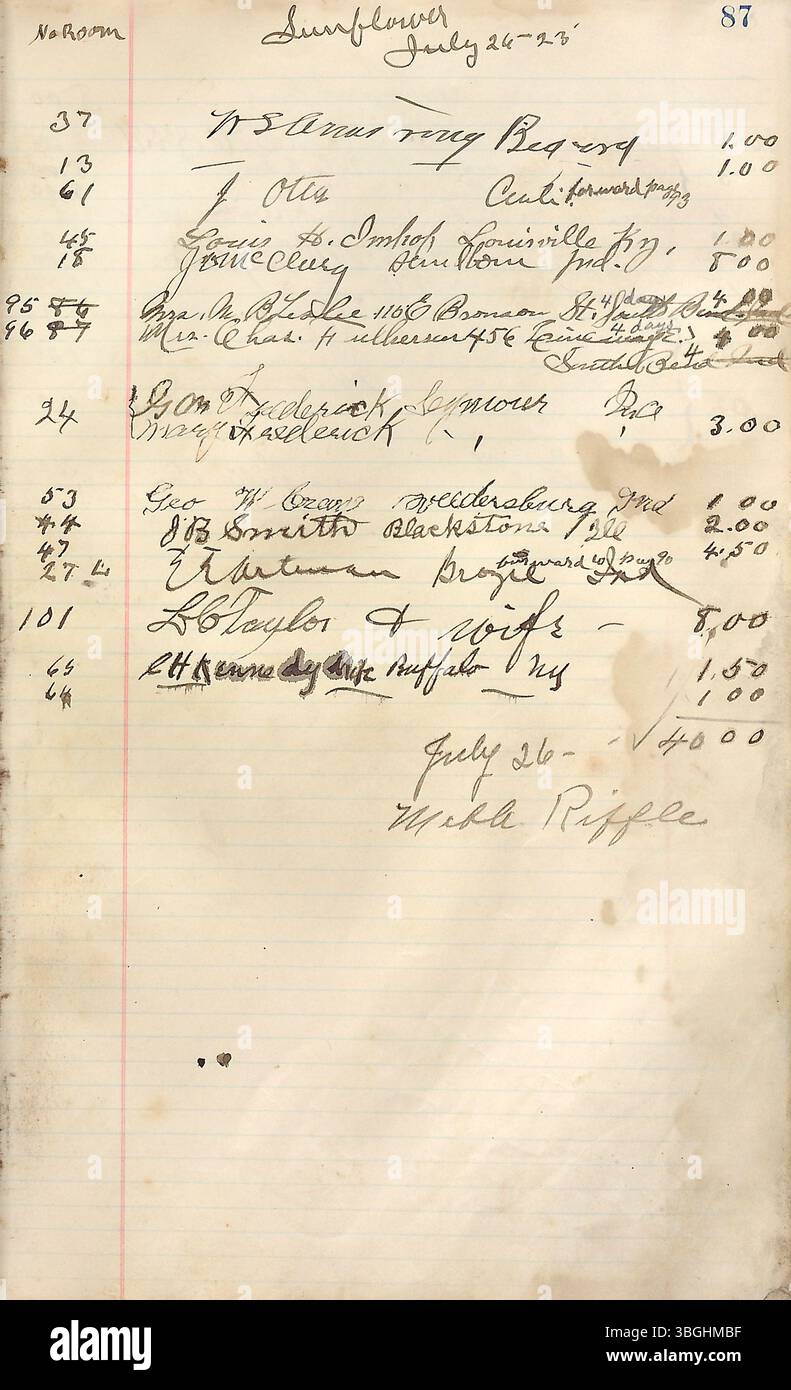 No Room Sunflower 87
July 26-23
37 W S Armstrong 1.00
13 — — 1.00
61 J Otis forward page 93
45 Louis H. Imhof, Louisville Ky, 1 00
18 J W McClurg Ind. 8 00
95 86 Mrs. M. B Leslie 110 E Bronson St. 4 days South Bend Ind 4 00
96 87 Mrs. Chas. 456 4 days 4 00
South Bend Ind
24 Geo W Frederick Seymour Ind
Mary Frederick " " 3.00
53 Geo W Crane Veedersburg Ind 1 00
44 J B Smith Blackstone Ill 2.00
47 forward to page 90 4.50
27 E Hartman Brazil Ind
101 L C Taylor & wife — 8,00
65 C H Kennedy & Wife Buffalo NY 1.50
64 — — — 1 00
July 26 - - √ 40 00
Riffle
alamy
Image ID: 3BGHMBF
www.alamy.com